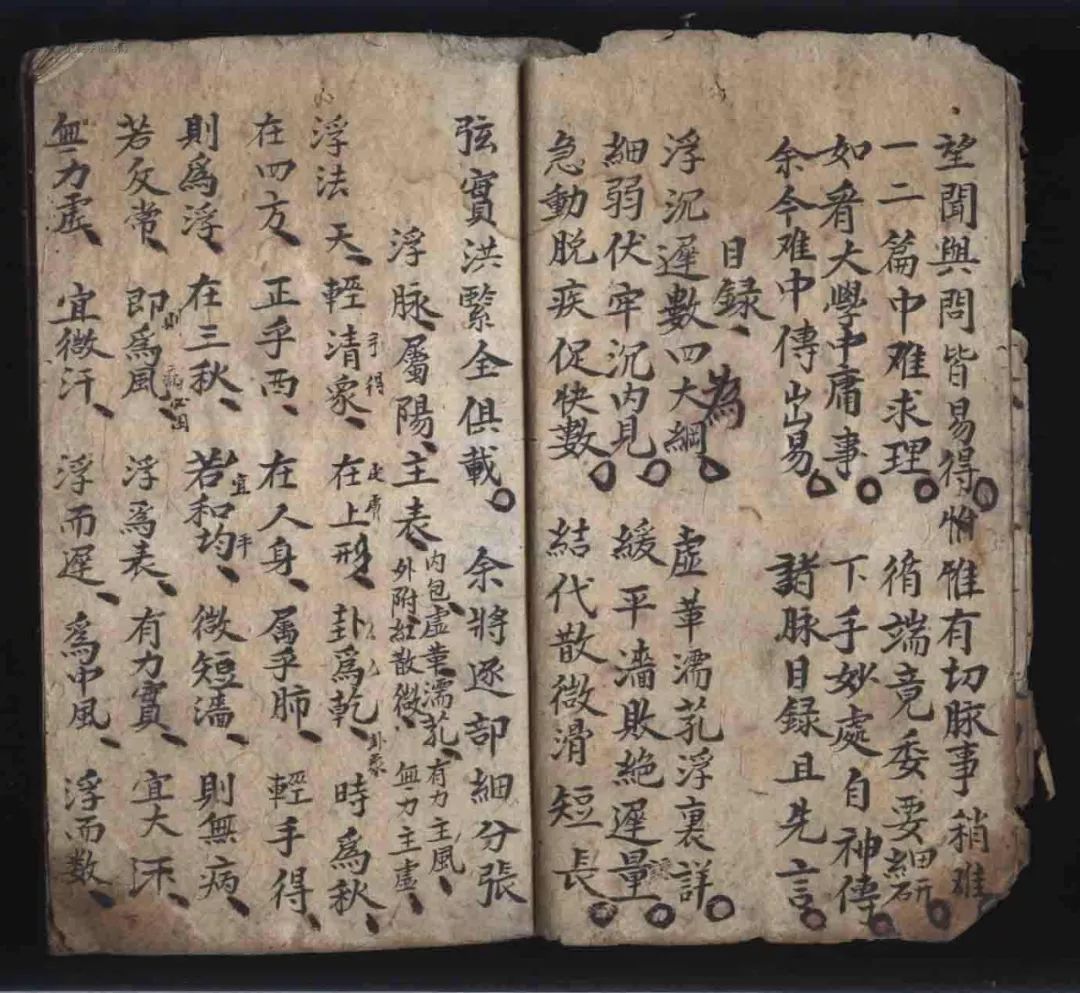 望聞與問皆易得惟有切脉事稍难
一二篇中难求理循端竟委要細研
如看大學中庸事下手妙處自神傳
余今难中傳出易諸脉目録且先言
目録
為
浮沉遲數四大綱虛革濡芤浮裏詳
細弱伏牢沉内見緩平濇敗絶遲量
急動脱疾促快數結代散微滑短長
弦實洪緊全俱載余將逐部細分張
浮脉屬陽主表内包虛革濡芤有力主風
外附散微無力主虛
浮法天輕清象在上形卦爲乾時爲秋
手得
卦象
在四方正乎西在人身属乎肺輕手得
則爲浮在三秋若和均微短濇則無病
宜
手
若反常即爲風浮爲表有力實宜大汗
則
無力虛宜微汗浮而遲爲中風浮而数